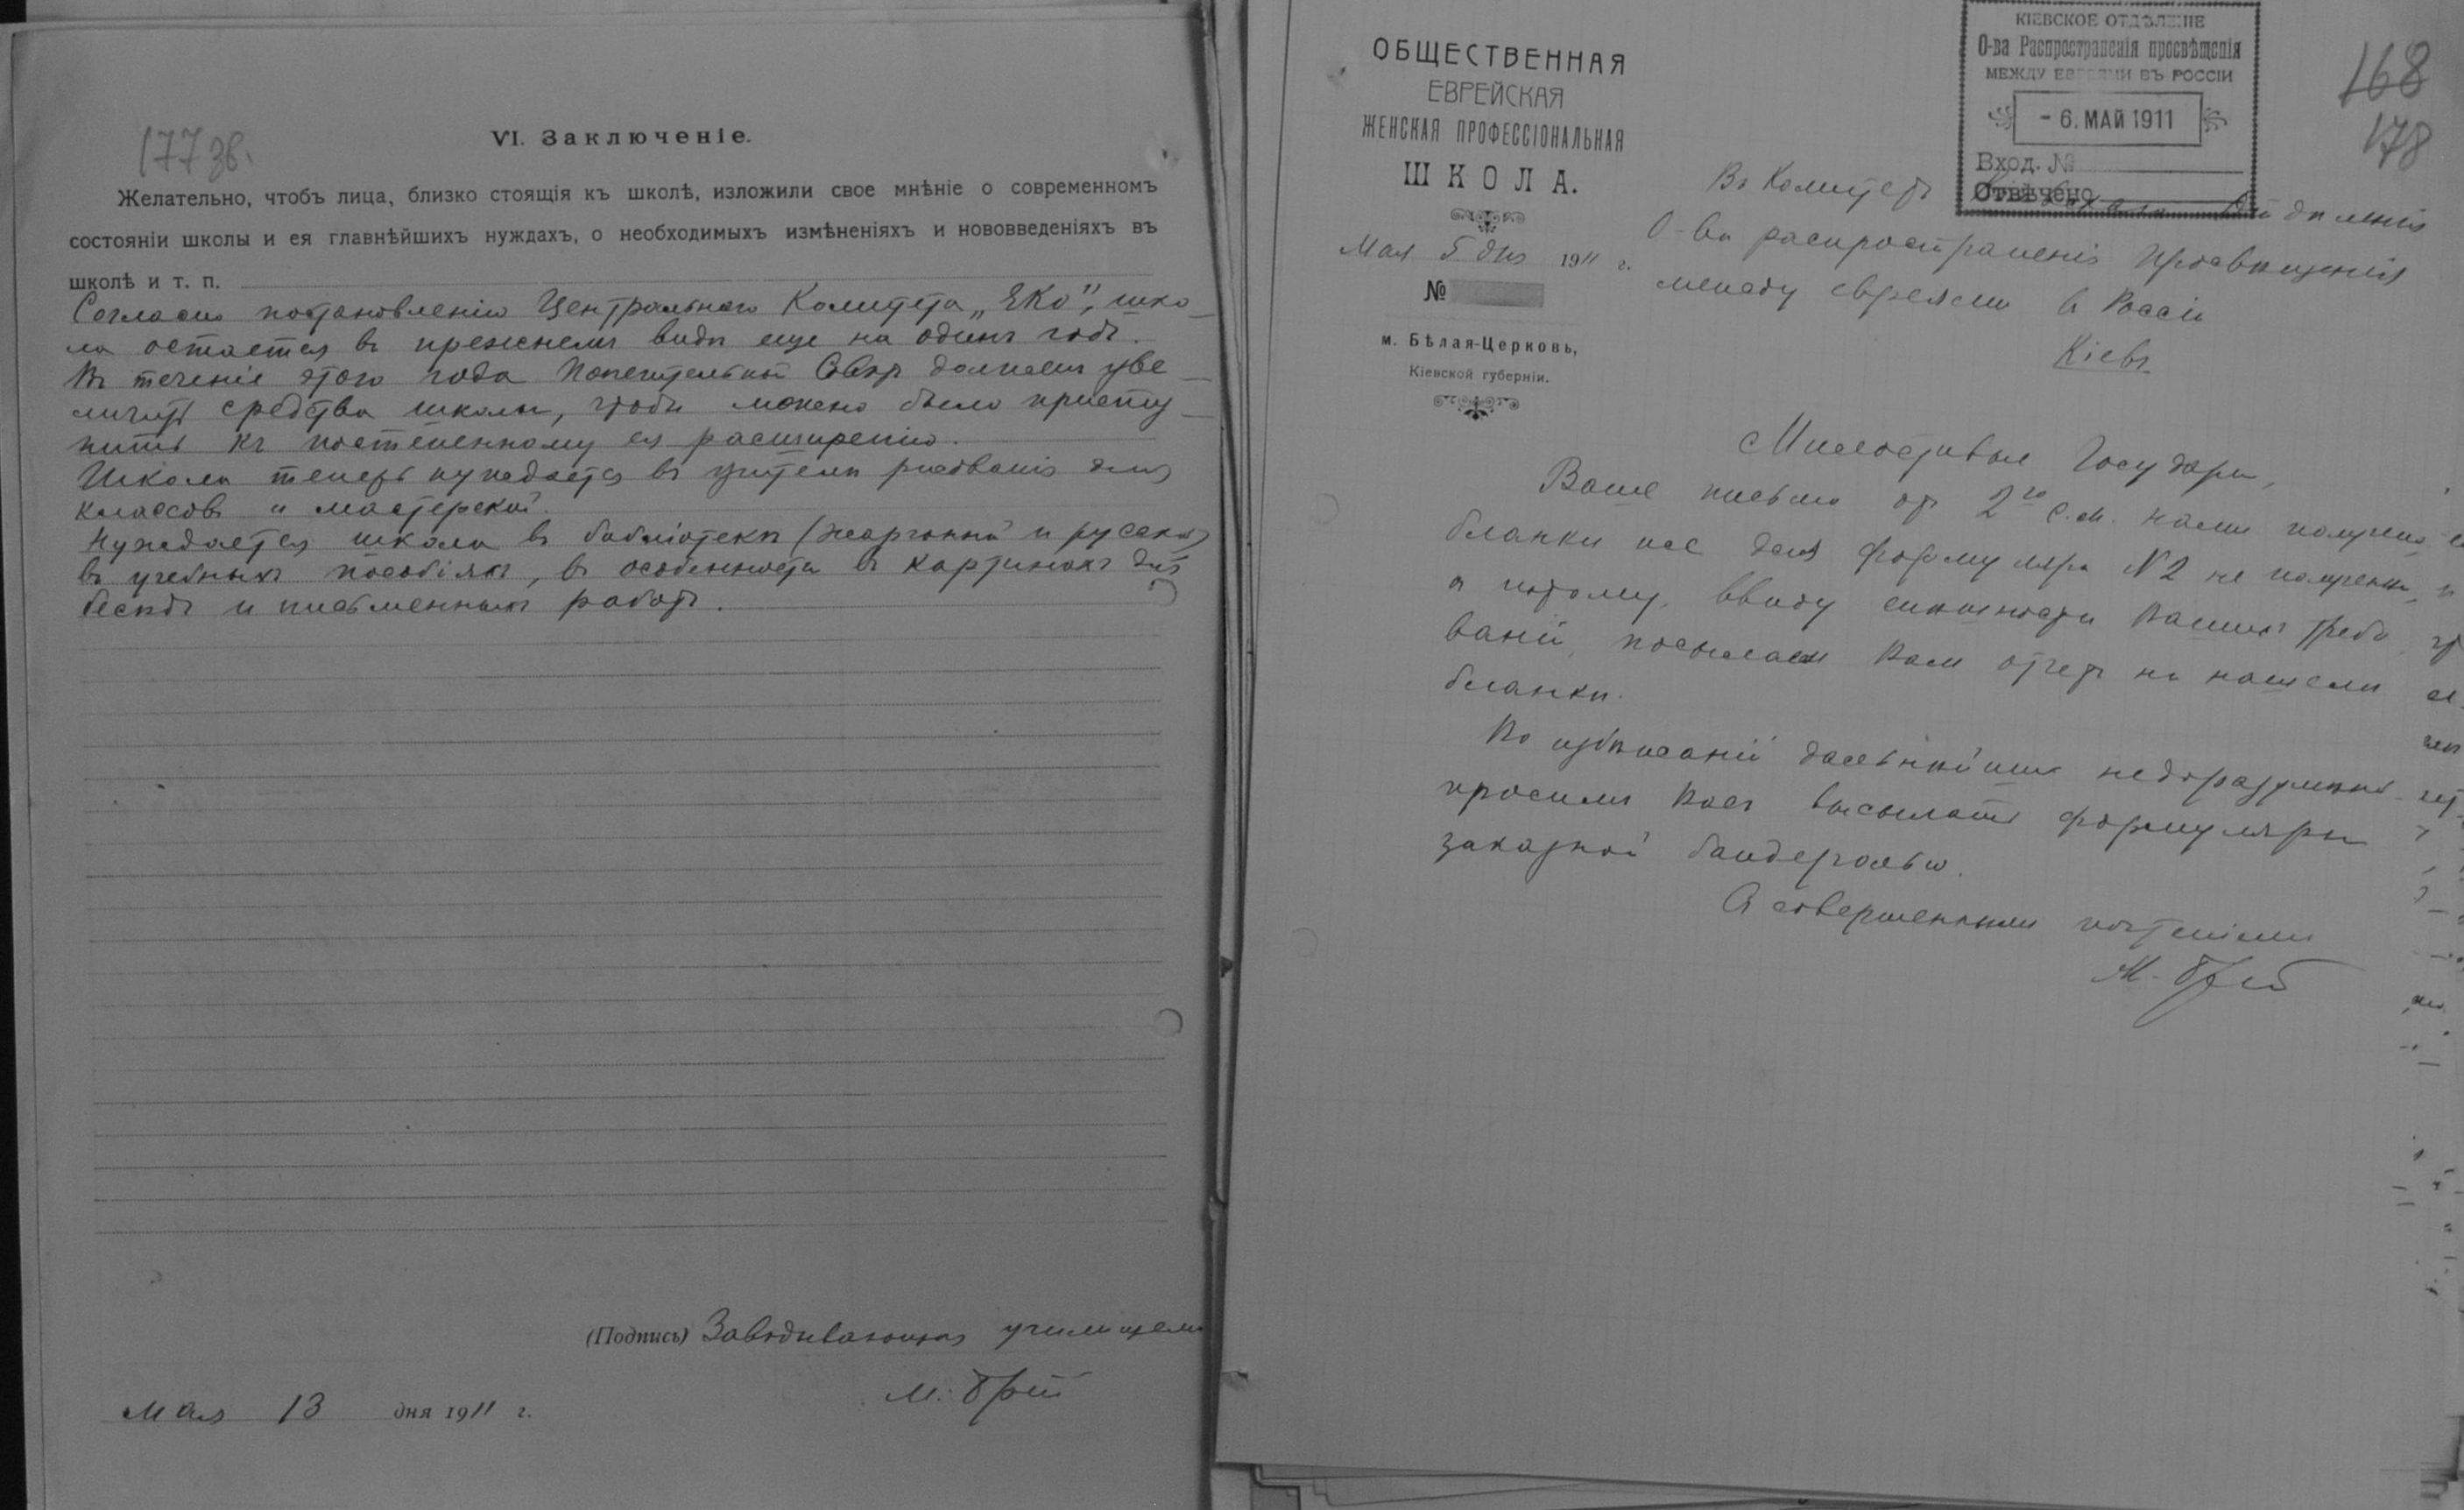 177 зв.
VI. Заключеніе.
Желательно, чтобъ лица, близко стоящія къ школѣ, изложили свое мнѣніе о современномъ
состояніи школы и ея главнѣйшихъ нуждахъ, о необходимыхъ измѣненіяхъ и нововведеніяхъ въ
школѣ и т. п.
Согласно постановленію Центральнаго Комитета „ЕКО", шко-
ла остается въ прежнемъ видѣ еще на одинъ годъ.
Въ теченіе этого года Попечительный Совѣтъ долженъ уве-
личить средства школы, чтобы можно было присту-
пить къ постепенному ея расширенію.
Школа теперь нуждается въ учителѣ рисованія для
классовъ и мастерской.
Нуждается школа въ библіотекѣ (жаргонной и русской)
въ учебныхъ пособіяхъ, въ особенности въ картинахъ для
бесѣдъ и письменныхъ работъ.
(Подпись) Завѣдывающая училищемъ
М.
мая 13 дня 1911 г.
168
178
КІЕВСКОЕ ОТДѢЛЕНІЕ
О-ва Распространенія просвѣщенія
МЕЖДУ ЕВРЕЯМИ ВЪ РОССІИ
- 6. МАЙ 1911
Вход. №
Отвѣчено
ОБЩЕСТВЕННАЯ
ЕВРЕЙСКАЯ
ЖЕНСКАЯ ПРОФЕССІОНАЛЬНАЯ
ШКОЛА.
Мая 5 дня 1911 г.
№
м. Бѣлая-Церковь,
Кіевской губерніи.
Въ Комитетъ Кіевскаго Отдѣленія
О-ва распространенія Просвѣщенія
между евреями в Россіи
Кіевъ
Милостивые Государи,
Ваше письмо отъ 2го с.м. нами получено,
бланки же для формуляра N 2 не получены,
а потому, ввиду спѣшности Вашихъ требо-
ваній, посылаемъ Вамъ отчетъ на нашемъ
бланкѣ.
Во избѣжаніи дальнѣйшихъ недоразумѣній
просимъ Васъ высылать формуляры
заказной бандеролью.
Съ совершеннымъ почтеніемъ
М.